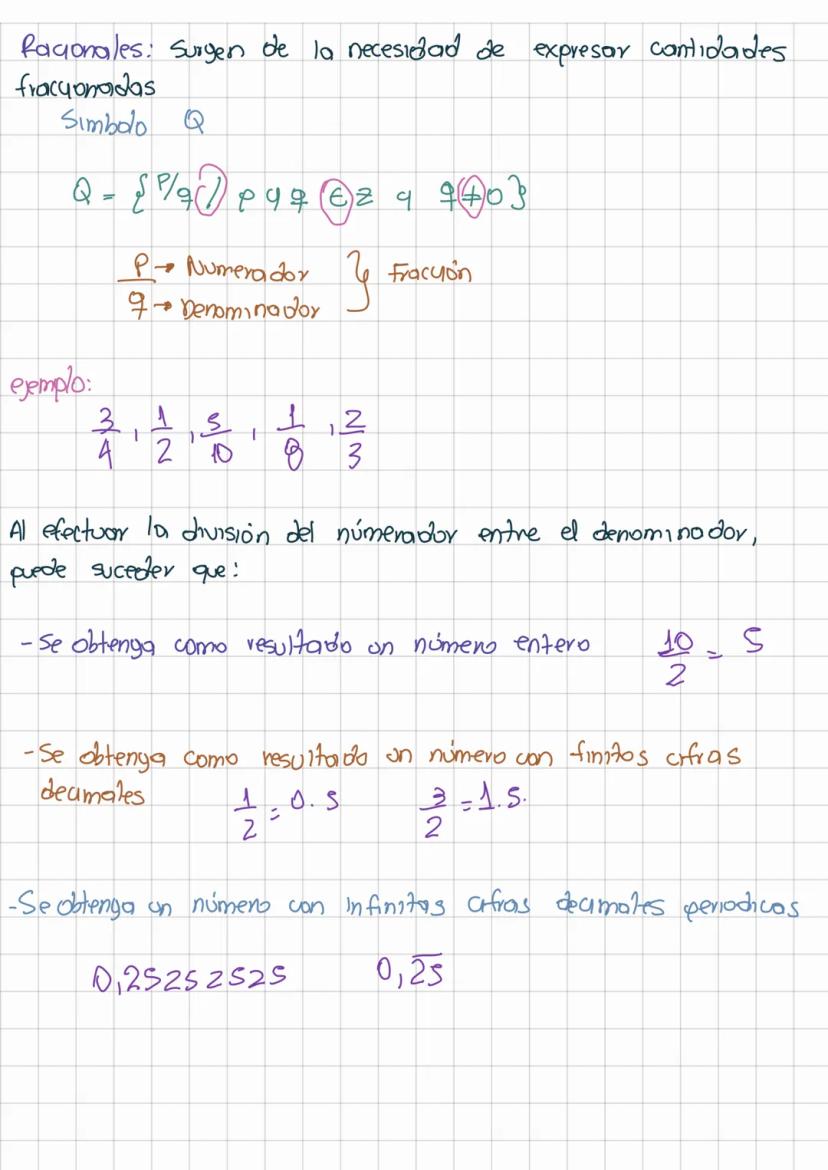 Racionales: Surgen de la necesidad de expresar cantidades
fraccionadas
Simbolo Q
Q = {P/q (/) p y q ∈ Z y q ≠ 0}
P → Numerador } Fracción
q → Denominador
ejemplo:
3/4, 1/2, 5/10, 1/8, 2/3
Al efectuar la división del númerador entre el denominador,
puede suceder que:
- Se obtenga como resultado un número entero 10/2 = 5
- Se obtenga como resultado un número con finitos cifras
decimales 1/2 = 0.5 3/2 = 1.5.
- Se obtenga un número con infinitas cifras decimales periodicos
0,25252525 0,2̅5̅